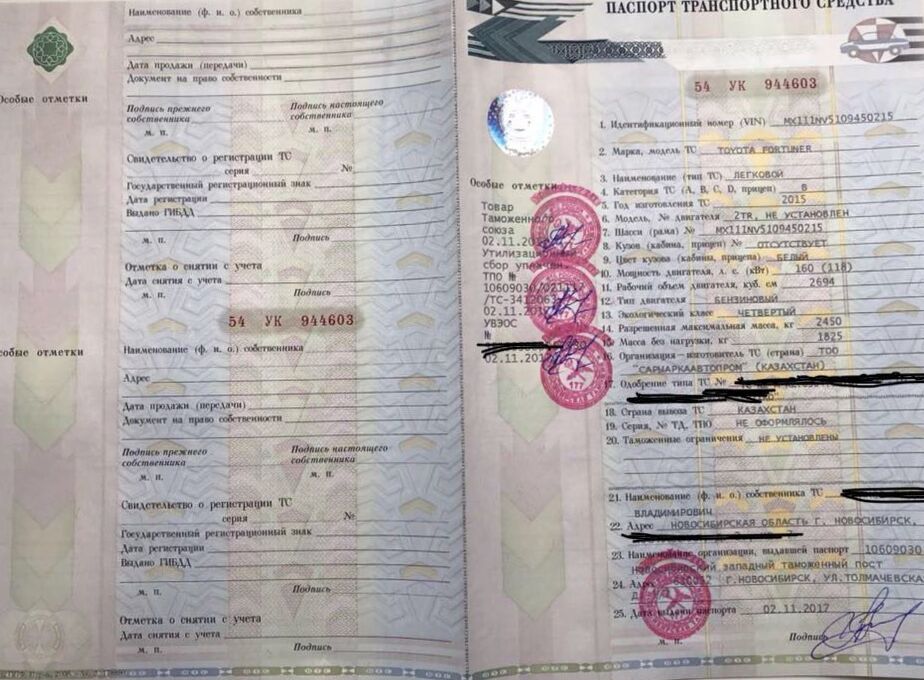 Наименование (ф. и. о.) собственника
Адрес
Дата продажи (передачи)
Документ на право собственности
Особые отметки
Подпись прежнего собственника
Подпись настоящего собственника
М. П.
М. П.
Свидетельство о регистрации ТС
серия №
Государственный регистрационный знак
Дата регистрации
Выдано ГИБДД
М. П.
Подпись
Отметка о снятии с учета
Дата снятия с учета
М. П.
Подпись
54 УК 944603
Особые отметки
Наименование (ф. и. о.) собственника
Адрес
Дата продажи (передачи)
Документ на право собственности
Подпись прежнего собственника
Подпись настоящего собственника
М. П.
М. П.
Свидетельство о регистрации ТС
серия №
Государственный регистрационный знак
Дата регистрации
Выдано ГИБДД
М. П.
Подпись
Отметка о снятии с учета
Дата снятия с учета
М. П.
Подпись
ПАСПОРТ ТРАНСПОРТНОГО СРЕДСТВА
54 УК 944603
1. Идентификационный номер (VIN) MX111NV5109450215
2. Марка, модель ТС TOYOTA FORTUNER
3. Наименование (тип ТС) ЛЕГКОВОЙ
4. Категория ТС (A, B, C, D, прицеп) B
5. Год изготовления ТС 2015
6. Модель, № двигателя 2TR, НЕ УСТАНОВЛЕН
7. Шасси (рама) № MX111NV5109450215
8. Кузов (кабина, прицеп) № ОТСУТСТВУЕТ
9. Цвет кузова (кабины, прицепа) БЕЛЫЙ
10. Мощность двигателя, л. с. (кВт) 160 (118)
11. Рабочий объем двигателя, куб. см 2694
12. Тип двигателя БЕНЗИНОВЫЙ
13. Экологический класс ЧЕТВЕРТЫЙ
14. Разрешенная максимальная масса, кг 2450
15. Масса без нагрузки, кг 1825
16. Организация–изготовитель ТС (страна) ТОО
"САРЫАРКААВТОПРОМ" (КАЗАХСТАН)
17. Одобрение типа ТС №
18. Страна вывоза ТС КАЗАХСТАН
19. Серия, № ТД, ТПО НЕ ОФОРМЛЯЛОСЬ
20. Таможенные ограничения НЕ УСТАНОВЛЕНЫ
21. Наименование (ф. и. о.) собственника ТС
ВЛАДИМИРОВИЧ
22. Адрес НОВОСИБИРСКАЯ ОБЛАСТЬ Г. НОВОСИБИРСК,
23. Наименование организации, выдавшей паспорт 10609030
НОВОСИБИРСКИЙ ЗАПАДНЫЙ ТАМОЖЕННЫЙ ПОСТ
24. Адрес Г.НОВОСИБИРСК, УЛ.ТОЛМАЧЕВСКА
25. Дата выдачи паспорта 02.11.2017
М. П.
Подпись
Особые отметки
Товар
Таможенного
союза
02.11.201
Утилизационный
сбор уплачен.
ТПО №
10609030/021117
/ТС-3412063
02.11.201
УВЭОС
№
02.11.201
177